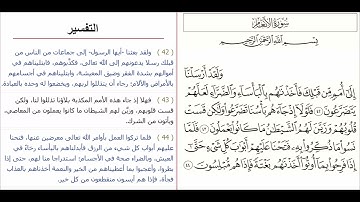 سورة الأنعام
بسم الله الرحمن الرحيم
ولقد أرسلنا
إلى أمم من قبلك فأخذنهم بالبأساء والضراء لعلهم
يتضرعون ٤٢ فلولا إذ جاءهم بأسنا تضرعوا ولكن قست
قلوبهم وزين لهم الشيطن ما كانوا يعملون ٤٣
فلما نسوا ما ذكروا به فتحنا عليهم أبوب كل شىء حتى
إذا فرحوا بما أوتوا أخذنهم بغتة فإذا هم مبلسون ٤٤
التفسير
( 42 ) ولقد بعثنا -أيها الرسول- إلى جماعات من الناس من
قبلك رسلا يدعونهم إلى الله تعالى، فكذَّبوهم، فابتليناهم في
أموالهم بشدة الفقر وضيق المعيشة، وابتليناهم في أجسامهم
بالأمراض والآلام؛ رجاء أن يتذللوا لربهم، ويخضعوا له وحده بالعبادة.
( 43 ) فهلا إذ جاء هذه الأمم المكذبة بلاؤنا تذللوا لنا، ولكن
قست قلوبهم، وزيَّن لهم الشيطان ما كانوا يعملون من المعاصي،
ويأتون من الشرك.
( 44 ) فلما تركوا العمل بأوامر الله تعالى معرضين عنها، فتحنا
عليهم أبواب كل شيء من الرزق فأبدلناهم بالبأساء رخاءً في
العيش، وبالضراء صحة في الأجسام؛ استدراجا منا لهم، حتى إذا
بطروا، وأعجبوا بما أعطيناهم من الخير والنعمة أخذناهم بالعذاب
فجأة، فإذا هم آيسون منقطعون من كل خير.